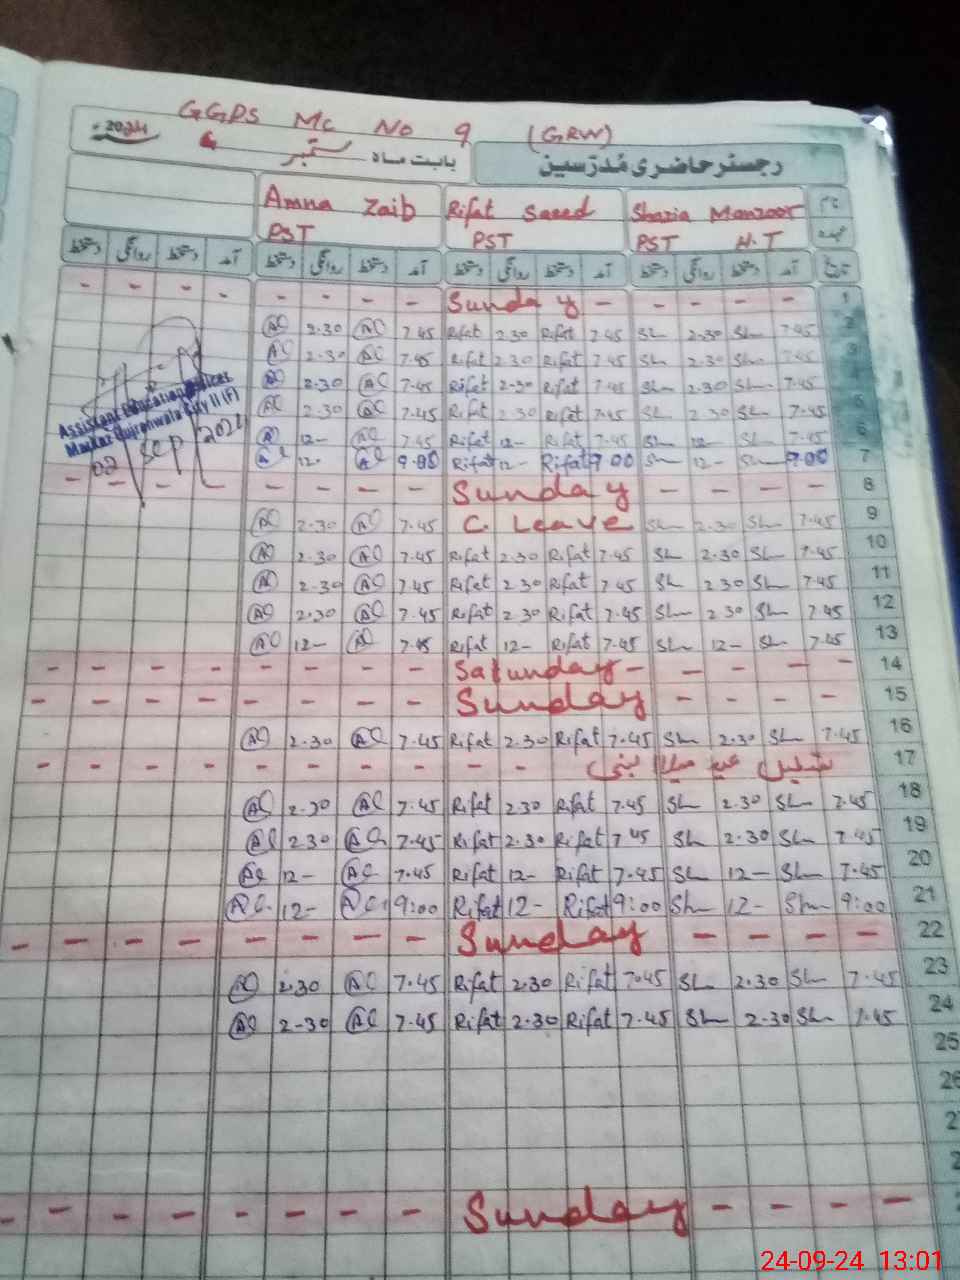 GGPS MC No 9 (GRW)
رجسٹر حاضری مُدرّسین بابت ماہ ستمبر 2024
نام Shazia Manzoor Rifat Saeed Amna Zaib
عہدہ PST H.T PST PST
تاریخ آمد دستخط روانگی دستخط آمد دستخط روانگی دستخط آمد دستخط روانگی دستخط آمد دستخط روانگی دستخط
- - - - - - - - Sunday - - - - - 1
AC 2.30 AC 7.45 Rifat 2.30 Rifat 7.45 Sh 2.30 Sh 7.45 2
AC 2.30 AC 7.45 Rifat 2.30 Rifat 7.45 Sh 2.30 Sh 7.45 3
AC 2.30 AC 7.45 Rifat 2.30 Rifat 7.45 Sh 2.30 Sh 7.45 4
AC 2.30 AC 7.45 Rifat 2.30 Rifat 7.45 Sh 2.30 Sh 7.45 5
AC 12- AC 7.45 Rifat 12- Rifat 7.45 Sh 12- Sh 7.45 6
AC 12- AC 9.00 Rifat 12- Rifat 9.00 Sh 12- Sh 9.00 7
- - - - - - - - Sunday - - - - 8
AC 2.30 AC 7.45 C. Leave Sh 2.30 Sh 7.45 9
AC 2.30 AC 7.45 Rifat 2.30 Rifat 7.45 Sh 2.30 Sh 7.45 10
AC 2.30 AC 7.45 Rifat 2.30 Rifat 7.45 Sh 2.30 Sh 7.45 11
AC 2.30 AC 7.45 Rifat 2.30 Rifat 7.45 Sh 2.30 Sh 7.45 12
AC 12- AC 7.45 Rifat 12- Rifat 7.45 Sh 12- Sh 7.45 13
- - - - - - - - Saturday - - - - - 14
- - - - - - - - Sunday - - - - 15
AC 2.30 AC 7.45 Rifat 2.30 Rifat 7.45 Sh 2.30 Sh 7.45 16
- - - - - - - - - - تعطیل عید میلاد نبی 17
AC 2.30 AC 7.45 Rifat 2.30 Rifat 7.45 Sh 2.30 Sh 7.45 18
AC 2.30 AC 7.45 Rifat 2.30 Rifat 7.45 Sh 2.30 Sh 7.45 19
AC 12- AC 7.45 Rifat 12- Rifat 7.45 Sh 12- Sh 7.45 20
AC. 12- AC. 9:00 Rifat 12- Rifat 9:00 Sh 12- Sh 9:00 21
- - - - - - - - Sunday - - - - 22
AC 2.30 AC 7.45 Rifat 2.30 Rifat 7.45 Sh 2.30 Sh 7.45 23
AC 2-30 AC 7.45 Rifat 2.30 Rifat 7.45 Sh 2.30 Sh 7.45 24
25
26
- - - - - - - - Sunday - - - -
Assistant Education Officer
Markaz Gujranwala City II (F)
02 Sep 2024
24-09-24 13:01